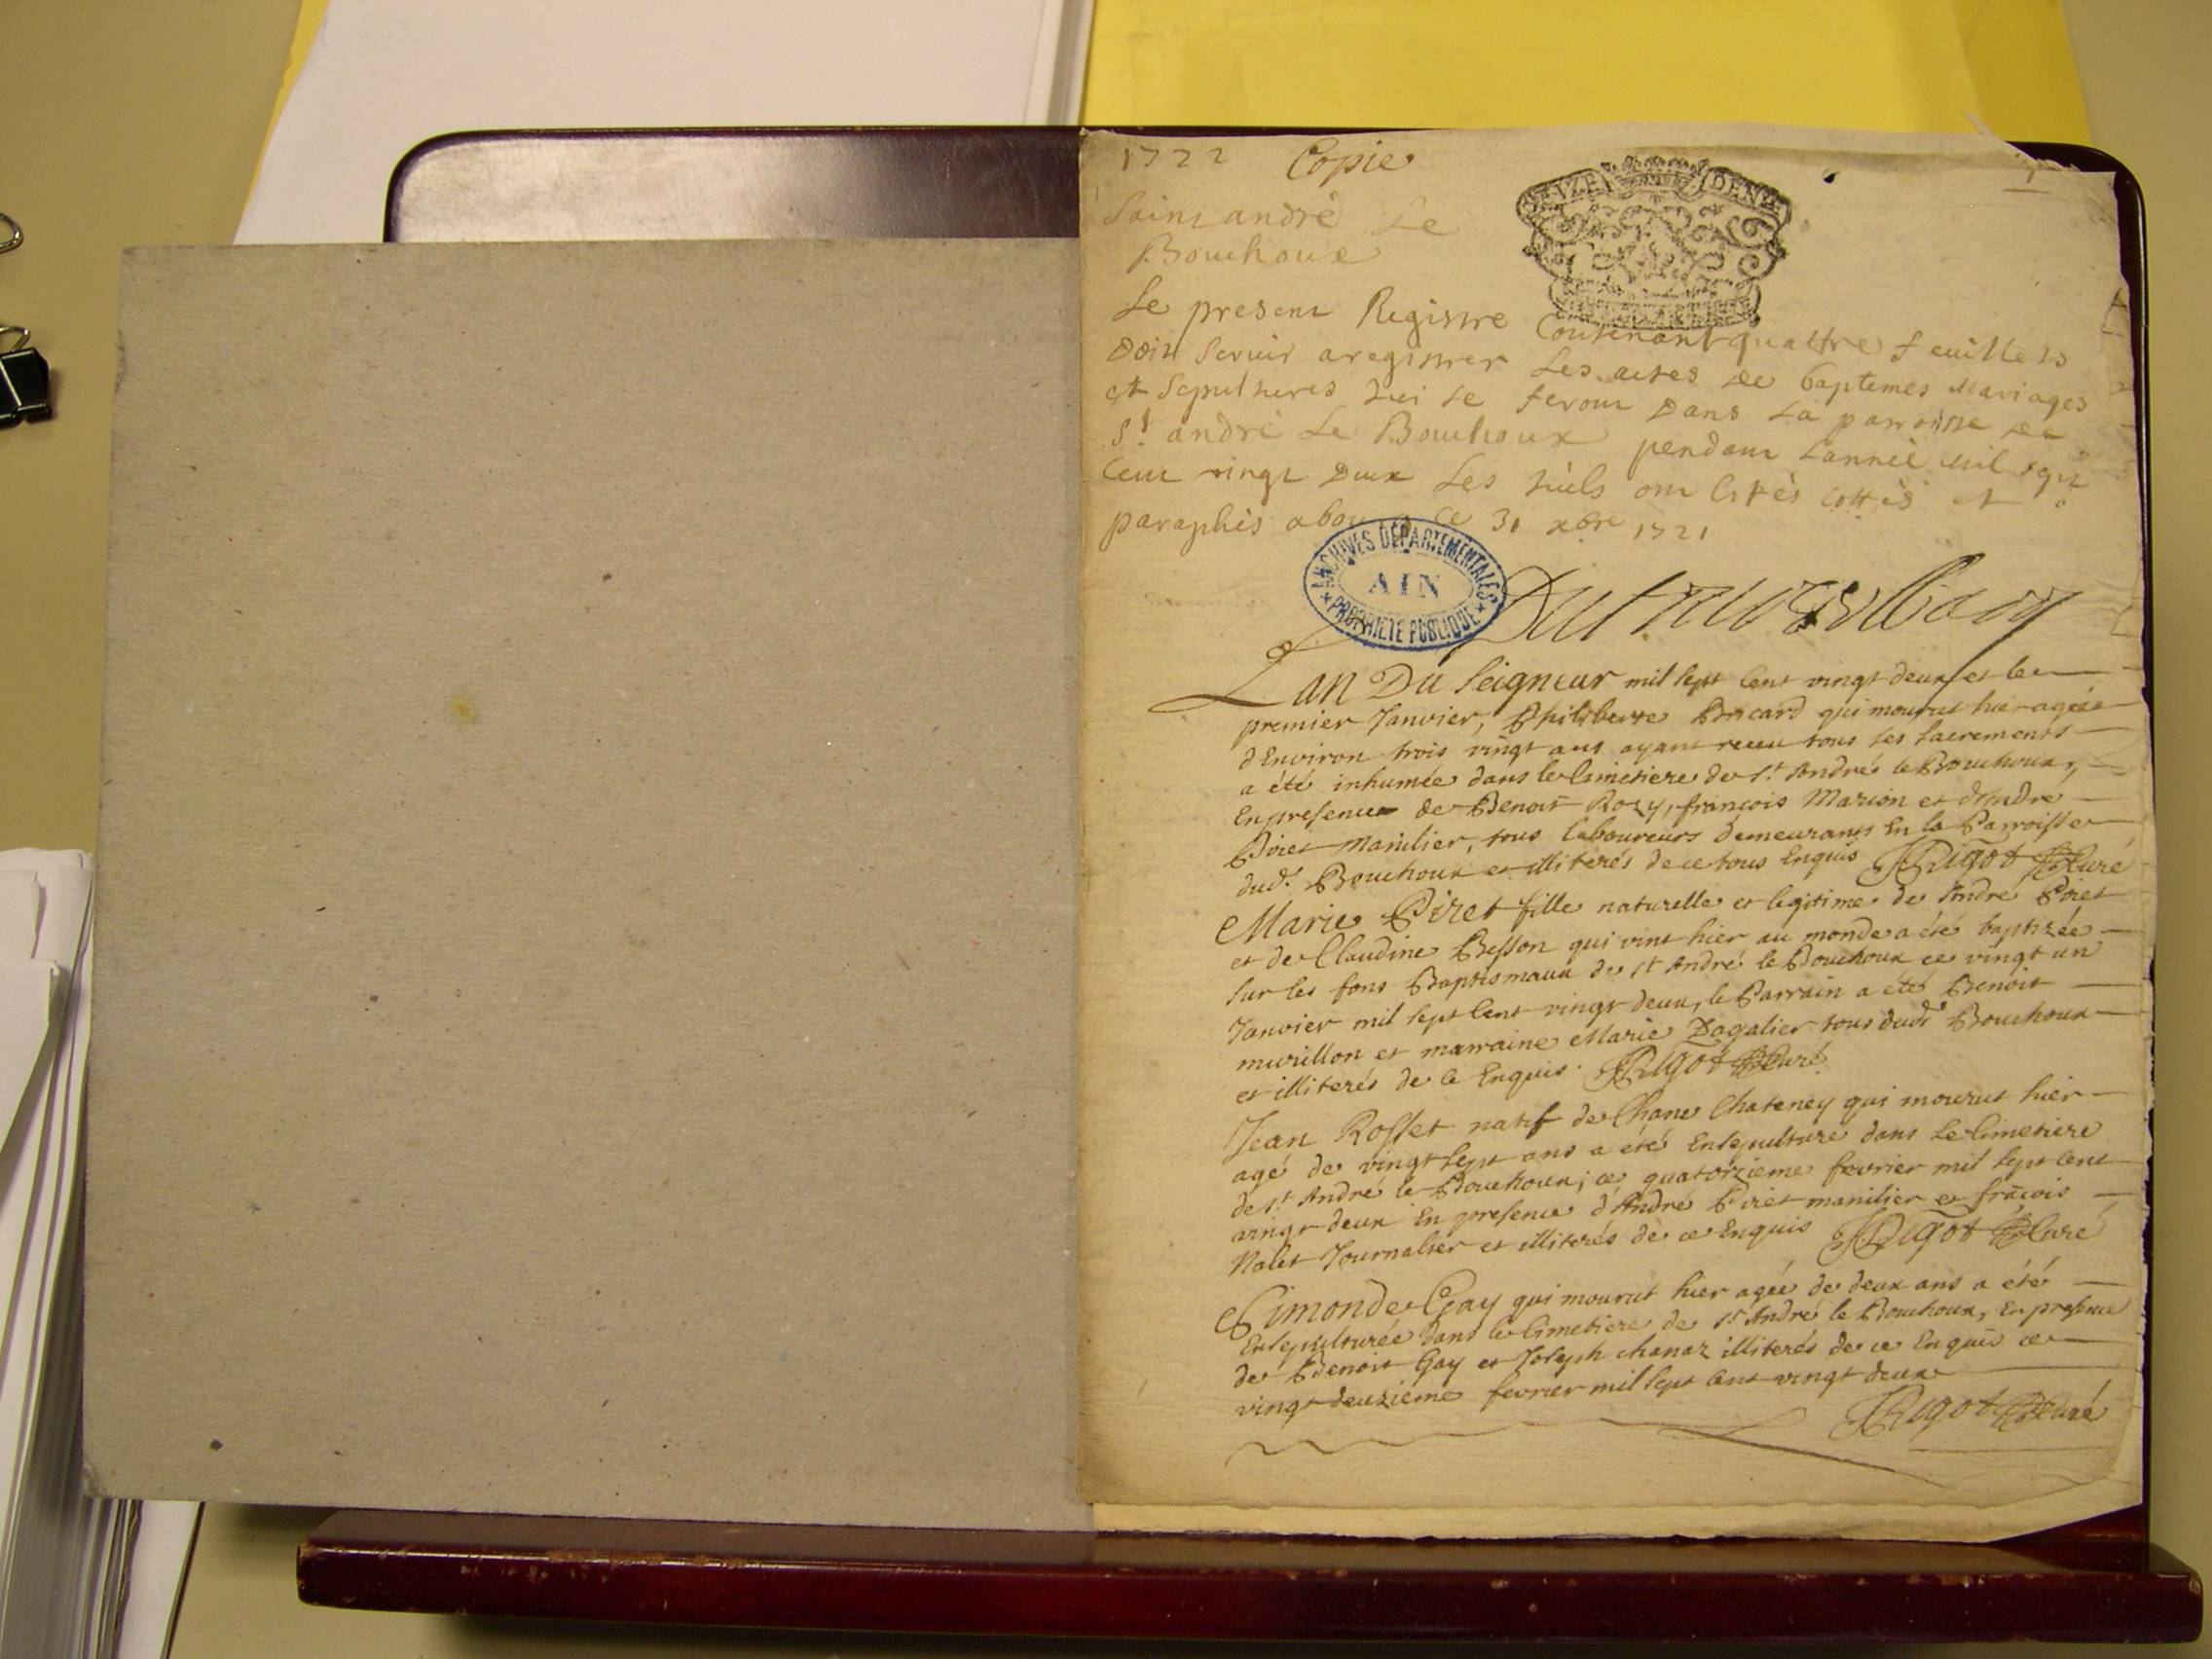 1722 Copie
Saint andré Le
Bouchoux
Le present Registre Contenant quattre feuillets
Doit Servir a registrer Les actes de baptemes Mariages
et Sepultures qui se feront Dans La parroisse de
St. andré Le Bouchoux pendant L'année mil sept
Cent vingt Deux Les quels ont Estés cottés et
paraphés a bourg ce 31 xbre 1721
ARCHIVES DÉPARTEMENTALES
AIN
PROPRIÉTÉ PUBLIQUE
L'an Du Seigneur mil sept cent vingt deux et le
premier Janvier, Philiberte Bricard qui mourut hier agée
d'Environ trois vingt ans ayant receu tous ses sacrements
a été inhumée dans le Cimetiere de St. André le Bouchoux,
En presence de Benoit Rozy, françois Marion et d'Andre
Piret Manilier, tous laboureurs demeurants En la Parroisse
dud. Bouchoux et illiterés de ce tous Enquis Rigot Curé
Marie Piret fille naturelle et legitime de André Piret
et de Claudine Besson qui vint hier au monde a été baptizée
sur les fons Baptismaux de St André le Bouchoux ce vingt un
Janvier mil sept cent vingt deux, le Parrain a été Benoit
murillon et marraine Marie Dagalier tous dudt Bouchoux
et illiterés de ce Enquis. Rigot Curé
Jean Rosset natif de Chane Chateney qui mourut hier
agé de vingt sept ans a été Ensepulturé dans le Cimetiere
de St André le Bouchoux; ce quatorzieme fevrier mil sept cent
vingt deux En presence d'André Piret manilier et frãcois
Nalet Journalier et illiterés de ce Enquis Rigot Curé
Simonde Gay qui mourut hier agée de deux ans a été
Ensepulturée dans le Cimetiere de St André le Bouchoux, En presence
de Benoit Gay et Joseph chanaz illiterés de ce Enquis ce
vingt deuzieme fevrier mil sept cent vingt deux
Rigot Curé